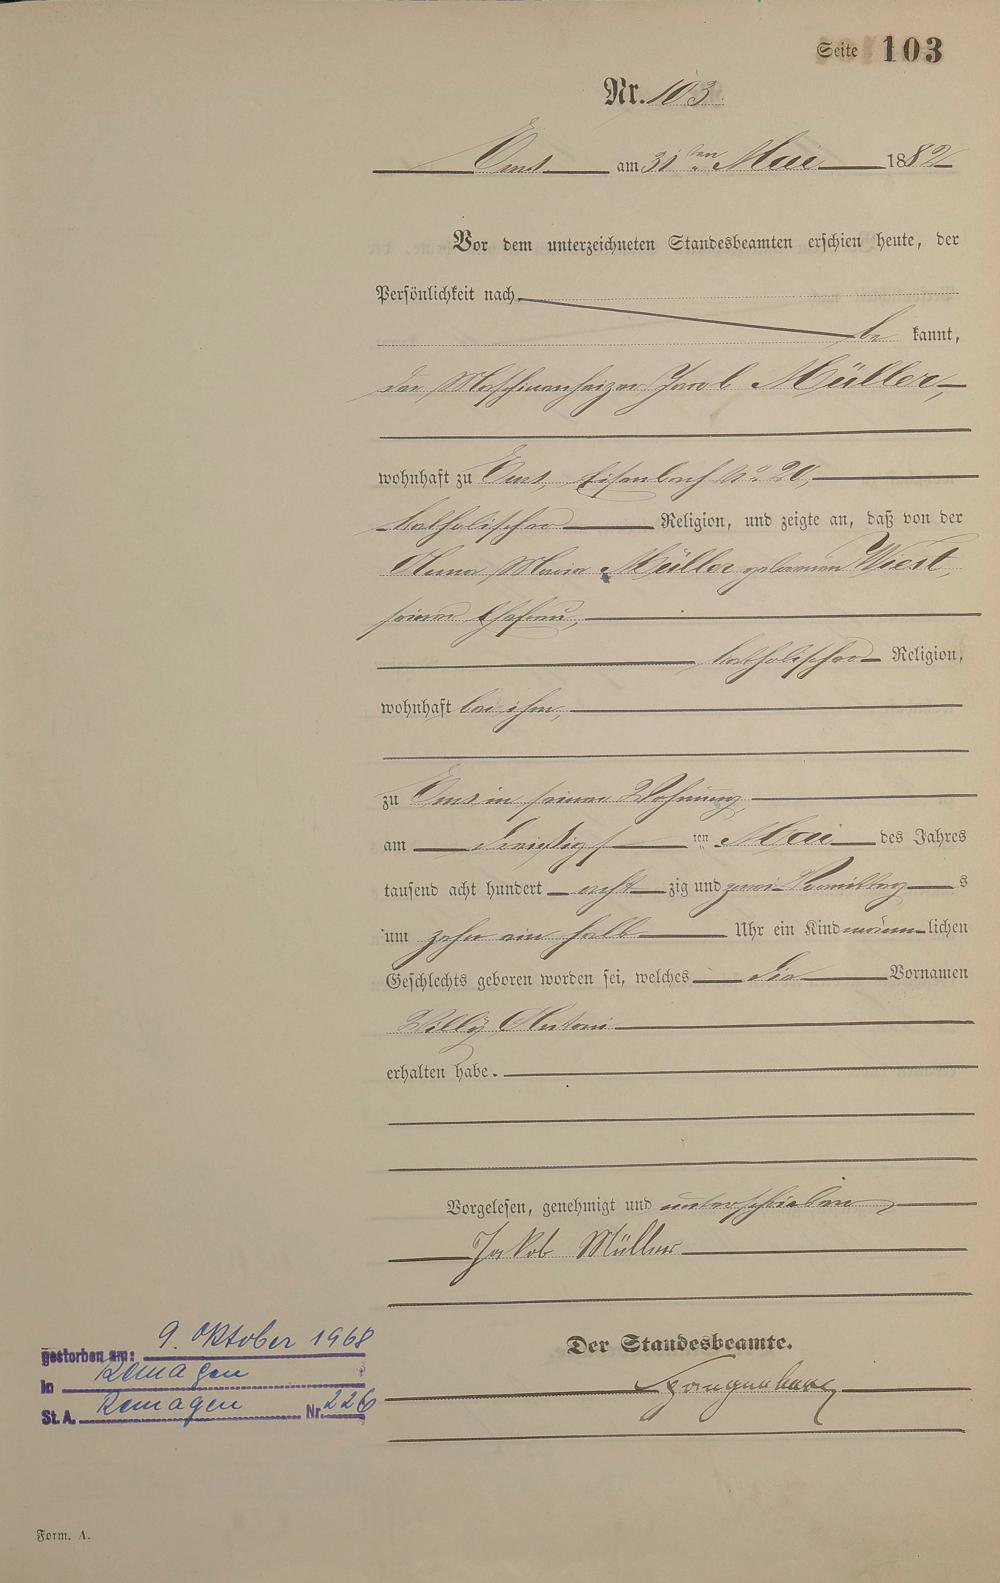 Seite 103
Nr. 103.
Ems am 31ten Mai 1882
Vor dem unterzeichneten Standesbeamten erschien heute, der
Persönlichkeit nach
be kannt,
der Maschinenheizer Jacob Müller,
wohnhaft zu Ems, Eisenbach No 20,
katholischer Religion, und zeigte an, daß von der
Anna Maria Müller geborenen Wiest,
seiner Ehefrau,
katholischer Religion,
wohnhaft bei ihm,
zu Ems in seiner Wohnung,
am dreißigs ten Mai des Jahres
tausend acht hundert acht zig und zwei Vormittag s
um zehn ein halb Uhr ein Kind männ lichen
Geschlechts geboren worden sei, welches die Vornamen
Willy Antoni
erhalten habe.
Vorgelesen, genehmigt und unterschrieben
Jakob Müller
Der Standesbeamte.
Spangenberg
gestorben am: 9. Oktober 1968
in Remagen
St. A. Remagen Nr. 226
Form. A.